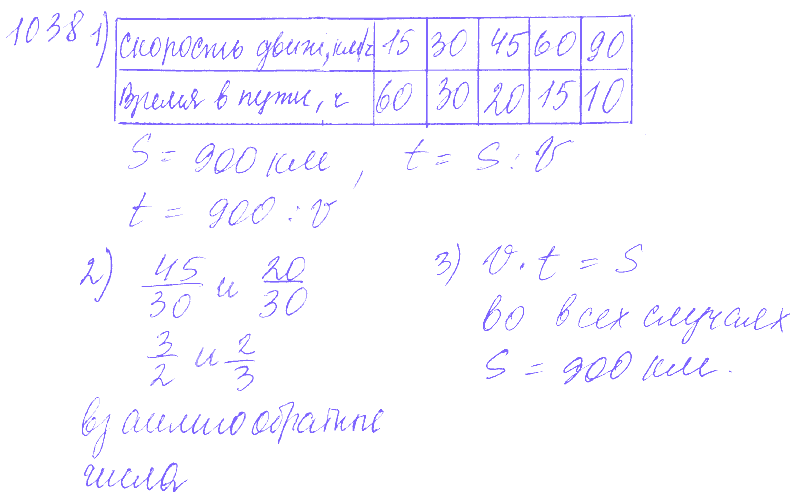 1038 1) Скорость движ., км/ч 15 30 45 60 90
Время в пути, ч 60 30 20 15 10
S = 900 км, t = S : V
t = 900 : v
2) 45/30 и 20/30
3/2 и 2/3
взаимнообратные
числа
3) v · t = S
во всех случаях
S = 900 км.